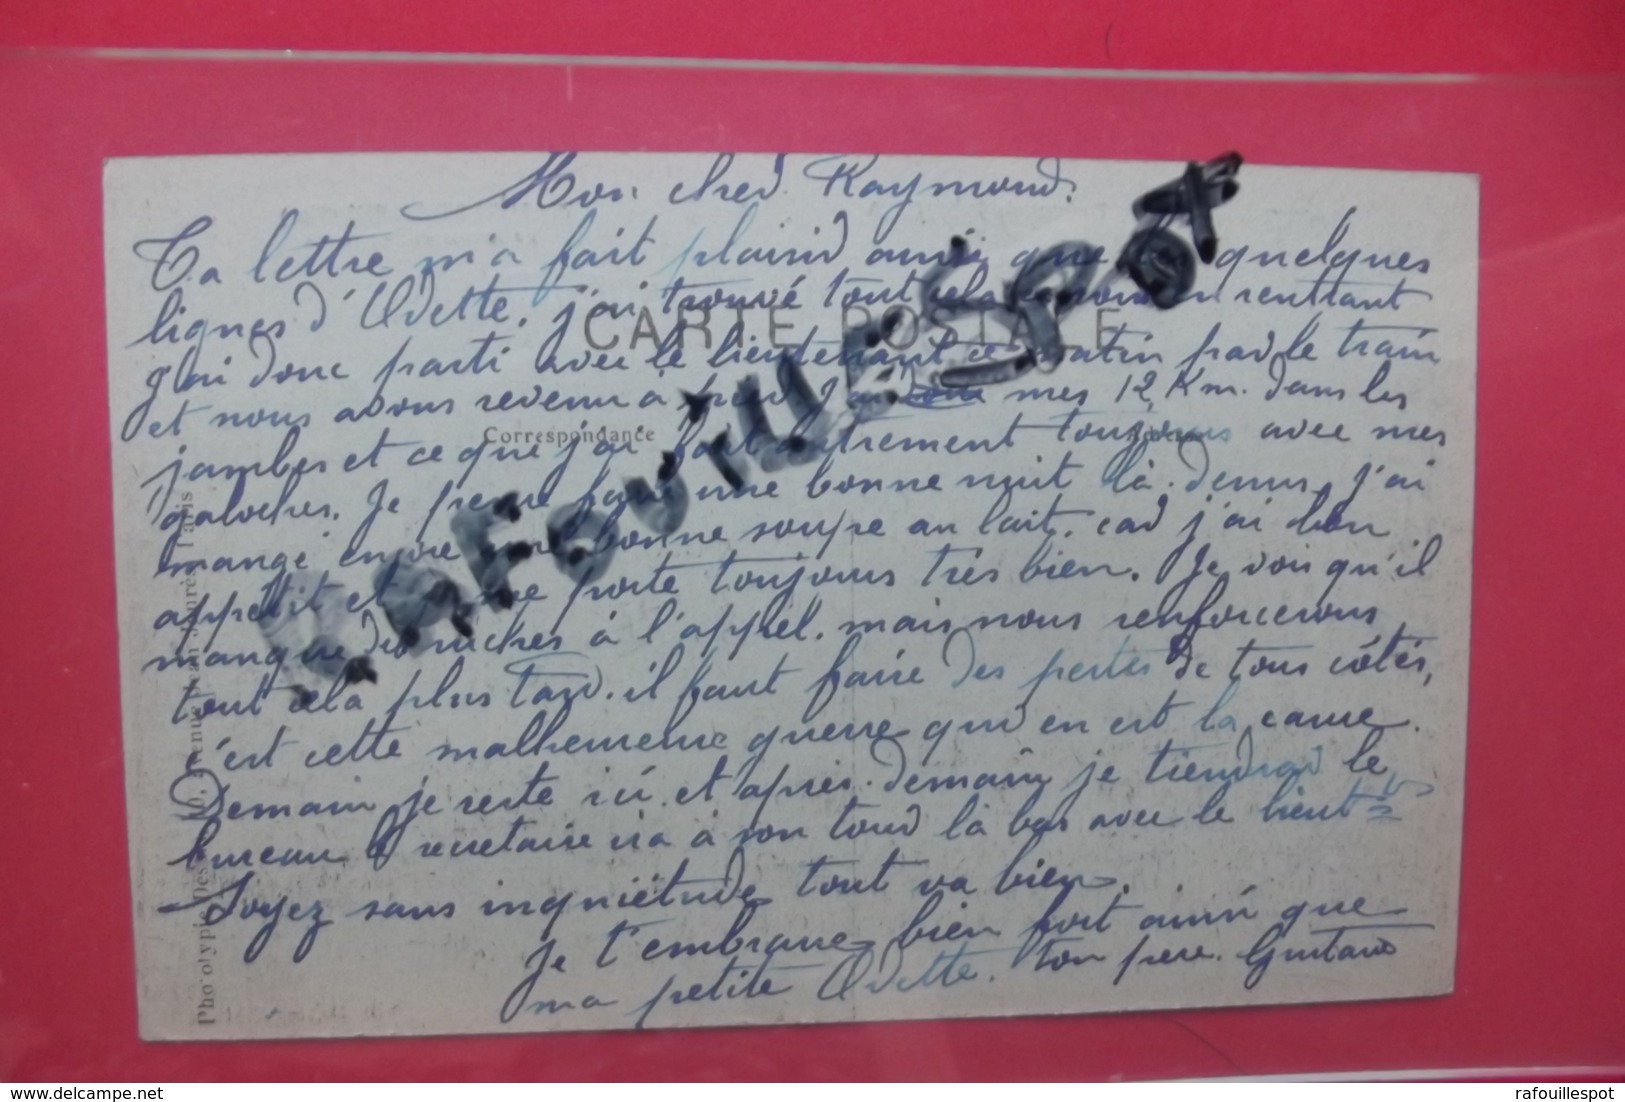 Mon cher Raymond.
Ta lettre m'a fait plaisir ainsi que les quelques
lignes d'Odette, j'ai trouvé tout cela en rentrant
j'ai donc parti avec le lieutenant ce matin par le train
et nous avons revenu à pied j'ai mes 12 Km. dans les
jambes et ce que j'ai fait autrement toujours avec mes
galoches. Je pense faire une bonne nuit là-dessus, j'ai
mangé encore une bonne soupe au lait. car j'ai bon
appétit et je me porte toujours très bien. Je vois qu'il
manque des ruches à l'appel. mais nous renforcerons
tout cela plus tard. il faut faire des pertes de tous côtés,
c'est cette malheureuse guerre qui en est la cause.
Demain je reste ici et après-demain je tiendrai le
bureau le secretaire ira à son tour là bas avec le lieut
Soyez sans inquiétude tout va bien.
Je t'embrasse bien fort ainsi que
ma petite Odette. ton père. Gustave
CARTE POSTALE
Correspondance
Paris
RAFOUILLESPOT
delcampe.net
rafouillespot